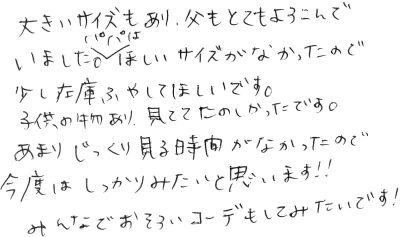 大きいサイズもあり、父もとてもよろこんで
いました。パパはほしいサイズがなかったので
少し在庫ふやしてほしいです。
子供の物あり、見ててたのしかったです。
あまりじっくり見る時間がなかったので
今度はしっかりみたいと思います!!
みんなでおそろいコーデもしてみたいです!